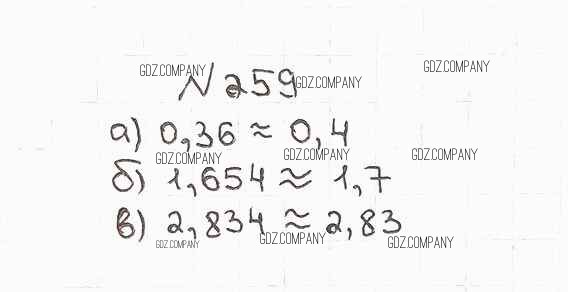 GDZ.COMPANY GDZ.COMPANY GDZ.COMPANY
N 259
а) 0,36 ≈ 0,4
GDZ.COMPANY GDZ.COMPANY GDZ.COMPANY
б) 1,654 ≈ 1,7
в) 2,834 ≈ 2,83
GDZ.COMPANY GDZ.COMPANY GDZ.COMPANY